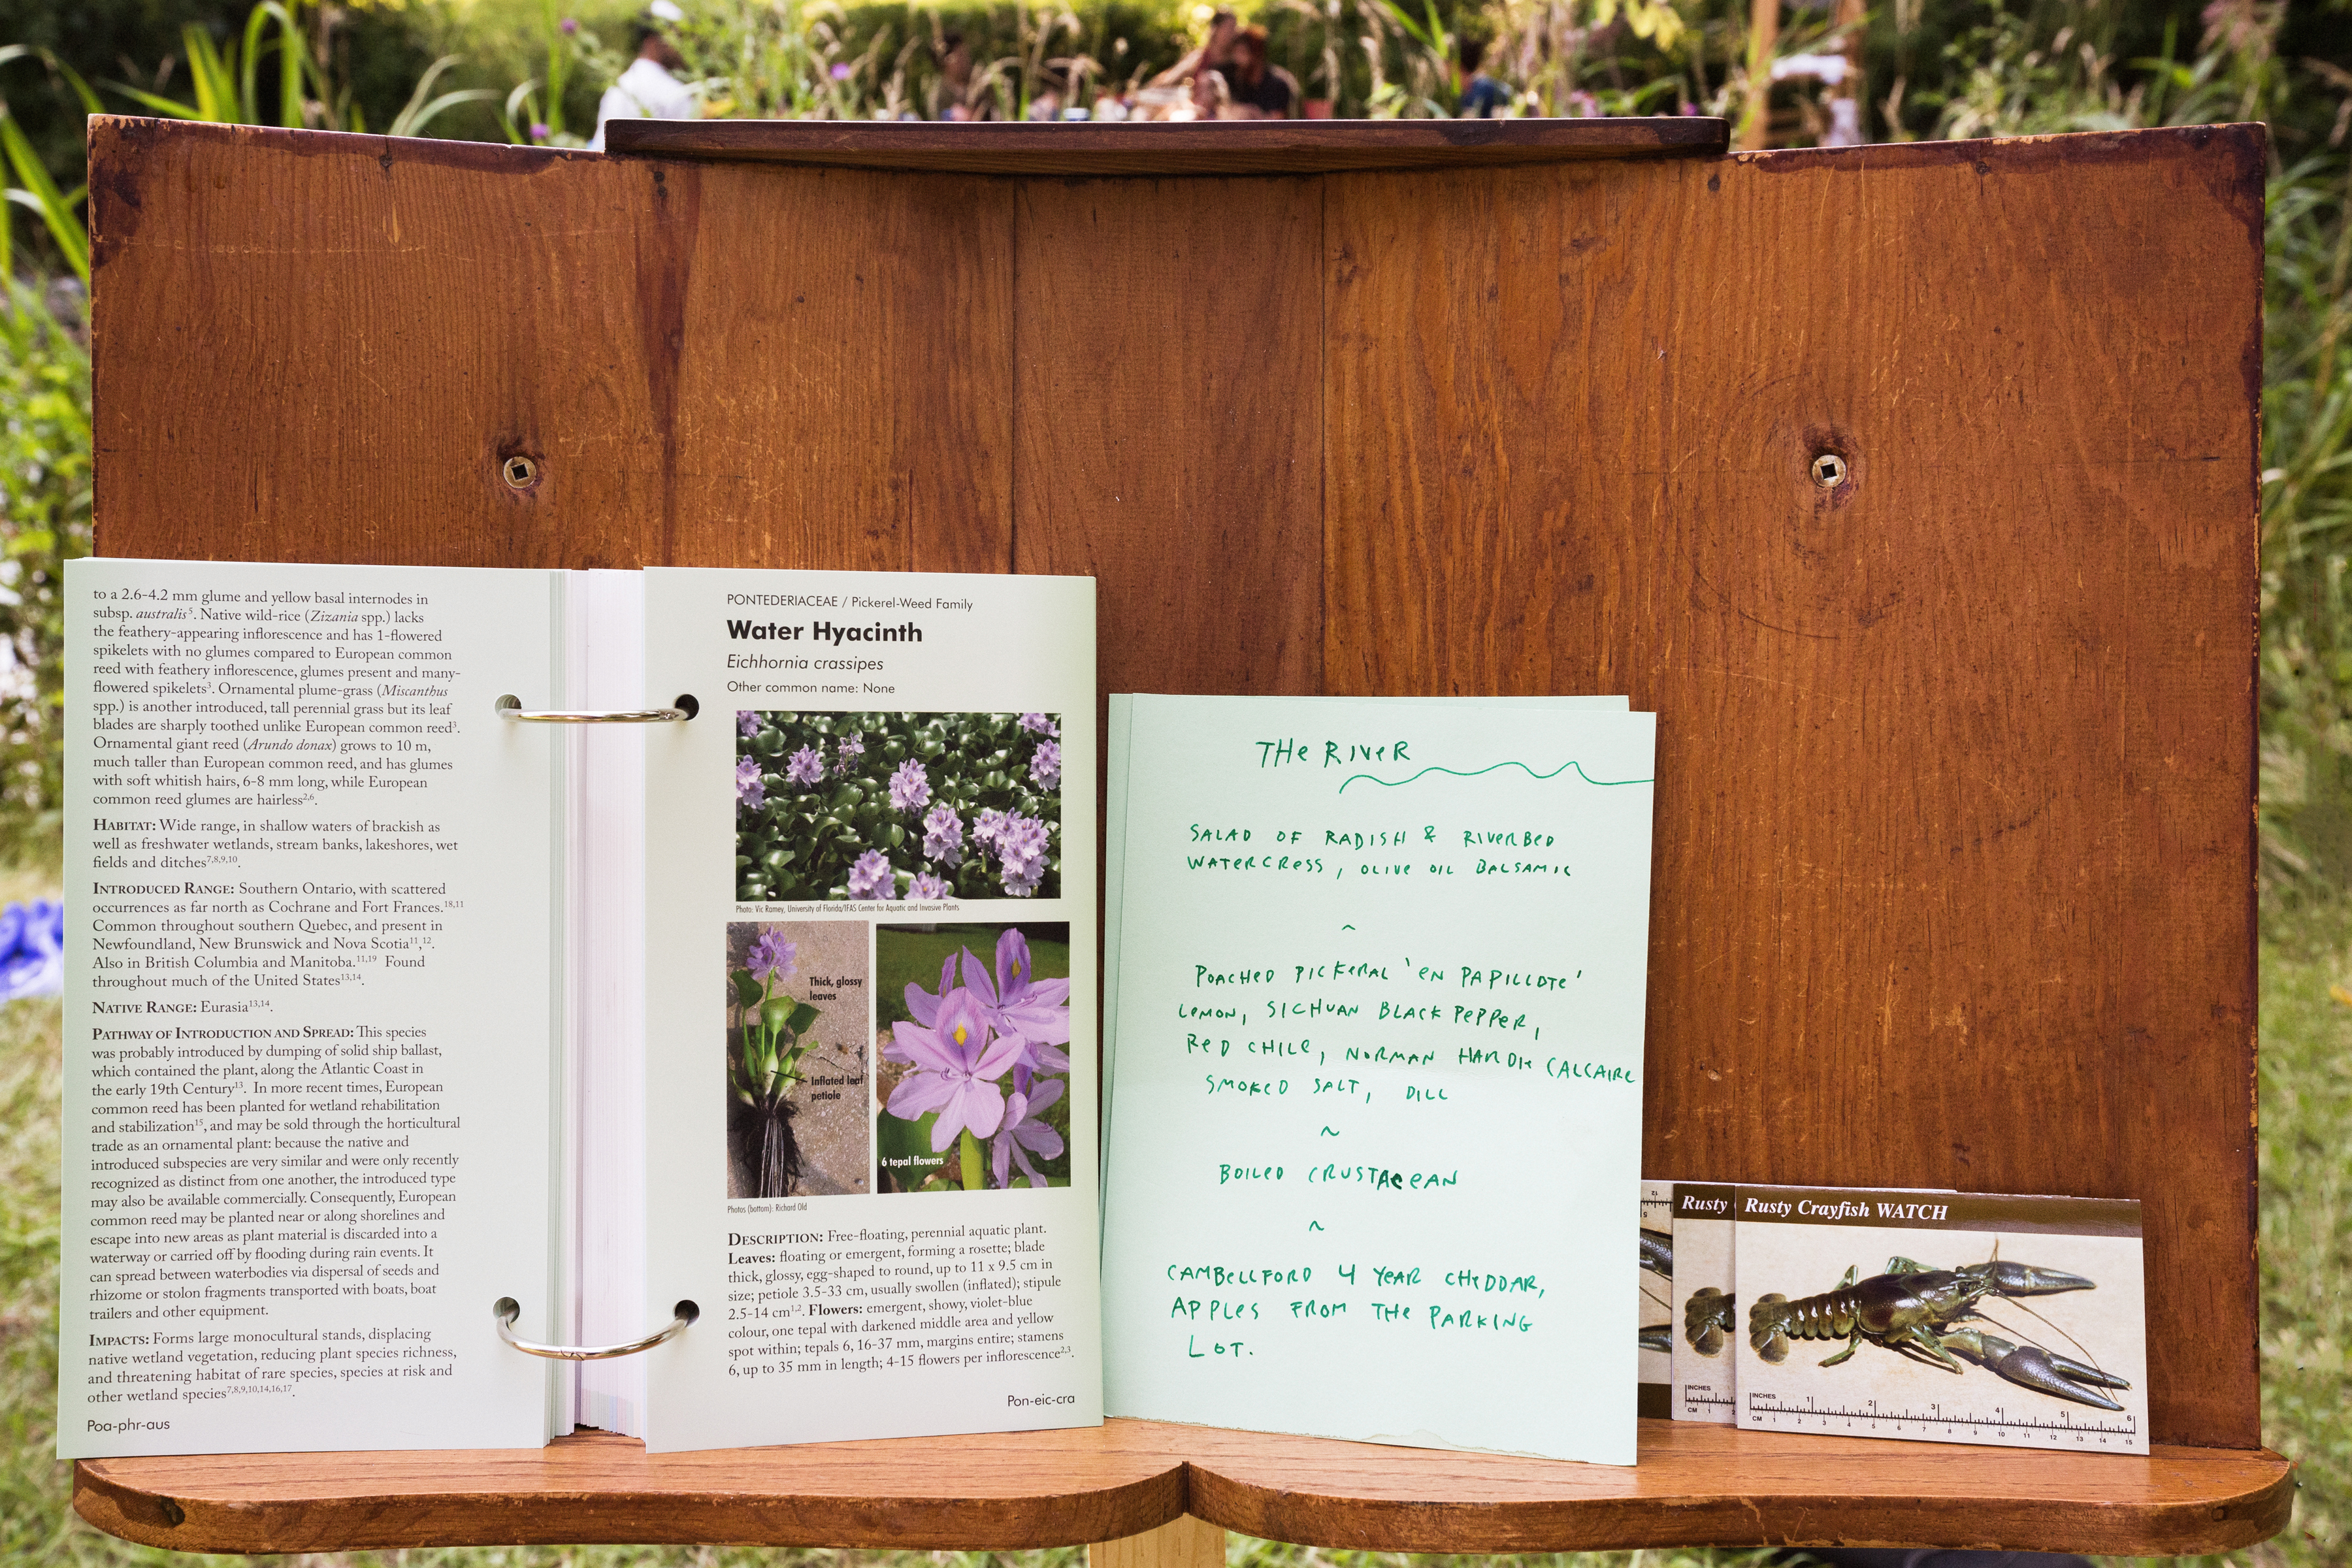 to a 2.6-4.2 mm glume and yellow basal internodes in
subsp. australis⁵. Native wild-rice (Zizania spp.) lacks
the feathery-appearing inflorescence and has 1-flowered
spikelets with no glumes compared to European common
reed with feathery inflorescence, glumes present and many-
flowered spikelets³. Ornamental plume-grass (Miscanthus
spp.) is another introduced, tall perennial grass but its leaf
blades are sharply toothed unlike European common reed³.
Ornamental giant reed (Arundo donax) grows to 10 m,
much taller than European common reed, and has glumes
with soft whitish hairs, 6-8 mm long, while European
common reed glumes are hairless²,⁶.
HABITAT: Wide range, in shallow waters of brackish as
well as freshwater wetlands, stream banks, lakeshores, wet
fields and ditches⁷,⁸,⁹,¹⁰.
INTRODUCED RANGE: Southern Ontario, with scattered
occurrences as far north as Cochrane and Fort Frances.¹⁸,¹¹
Common throughout southern Quebec, and present in
Newfoundland, New Brunswick and Nova Scotia¹¹,¹².
Also in British Columbia and Manitoba.¹¹,¹⁹ Found
throughout much of the United States¹³,¹⁴.
NATIVE RANGE: Eurasia¹³,¹⁴.
PATHWAY OF INTRODUCTION AND SPREAD: This species
was probably introduced by dumping of solid ship ballast,
which contained the plant, along the Atlantic Coast in
the early 19th Century¹³. In more recent times, European
common reed has been planted for wetland rehabilitation
and stabilization¹⁵, and may be sold through the horticultural
trade as an ornamental plant: because the native and
introduced subspecies are very similar and were only recently
recognized as distinct from one another, the introduced type
may also be available commercially. Consequently, European
common reed may be planted near or along shorelines and
escape into new areas as plant material is discarded into a
waterway or carried off by flooding during rain events. It
can spread between waterbodies via dispersal of seeds and
rhizome or stolon fragments transported with boats, boat
trailers and other equipment.
IMPACTS: Forms large monocultural stands, displacing
native wetland vegetation, reducing plant species richness,
and threatening habitat of rare species, species at risk and
other wetland species⁷,⁸,⁹,¹⁰,¹⁴,¹⁶,¹⁷.
Poa-phr-aus
PONTEDERIACEAE / Pickerel-Weed Family
Water Hyacinth
Eichhornia crassipes
Other common name: None
Photo: Vic Ramey, University of Florida/IFAS Center for Aquatic and Invasive Plants
Thick, glossy
leaves
Inflated leaf
petiole
6 tepal flowers
Photos (bottom): Richard Old
DESCRIPTION: Free-floating, perennial aquatic plant.
Leaves: floating or emergent, forming a rosette; blade
thick, glossy, egg-shaped to round, up to 11 x 9.5 cm in
size; petiole 3.5-33 cm, usually swollen (inflated); stipule
2.5-14 cm¹,². Flowers: emergent, showy, violet-blue
colour, one tepal with darkened middle area and yellow
spot within; tepals 6, 16-37 mm, margins entire; stamens
6, up to 35 mm in length; 4-15 flowers per inflorescence²,³.
Pon-eic-cra
THE RIVER
SALAD OF RADISH & RIVERBED
WATERCRESS, OLIVE OIL BALSAMIC
~
POACHED PICKERAL 'EN PAPILLOTE'
LEMON, SICHUAN BLACK PEPPER,
RED CHILE, NORMAN HARDIE CALCAIRE
SMOKED SALT, DILL
~
BOILED CRUSTACEAN
~
CAMBELLFORD 4 YEAR CHEDDAR,
APPLES FROM THE PARKING
LOT.
12
5
Rusty
INCHES
CM 1
Rusty Crayfish WATCH
INCHES 1 2 3 4 5 6
CM 1 2 3 4 5 6 7 8 9 10 11 12 13 14 15